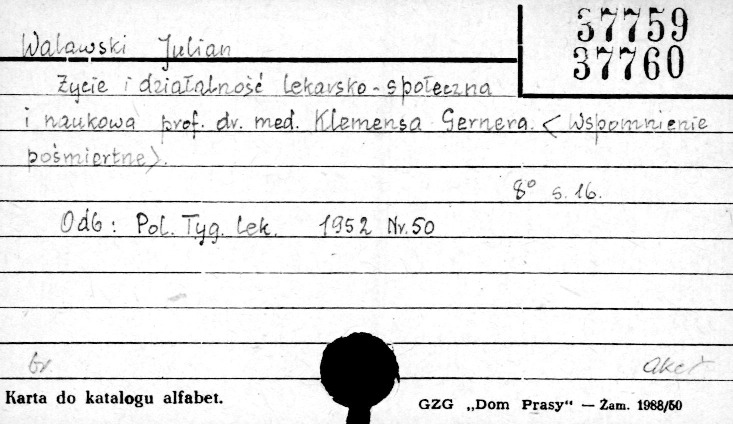 37759
37760
Walawski Julian
Życie i działalność lekarsko-społeczna
i naukowa prof. dr. med. Klemensa Gernera. <Wspomnienie
pośmiertne>.
8° s. 16.
Odb: Pol. Tyg. lek. 1952 Nr. 50
Karta do katalogu alfabet.
GZG „Dom Prasy“ — Żam. 1988/50